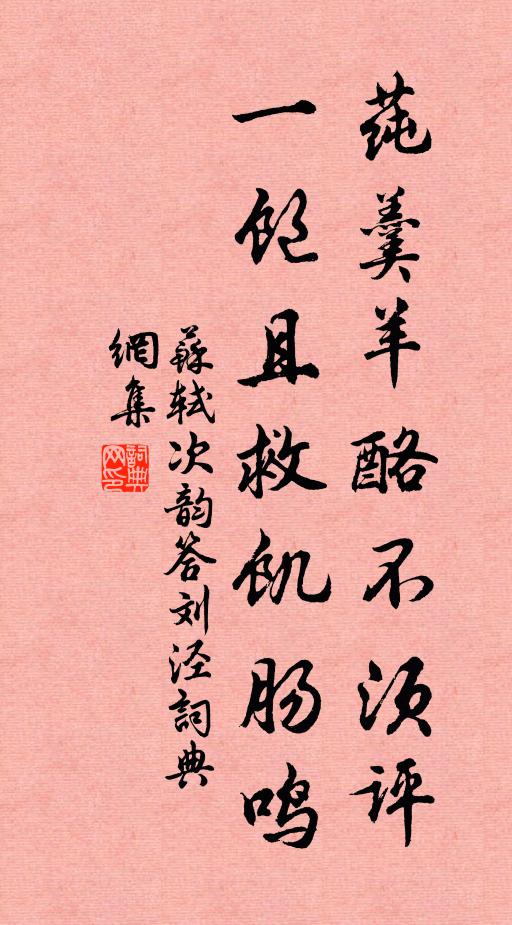 莼羹羊酪不须评
一饱且救饥肠鸣
蘇轼次韵答刘泾詞典
網集
詞典
网印